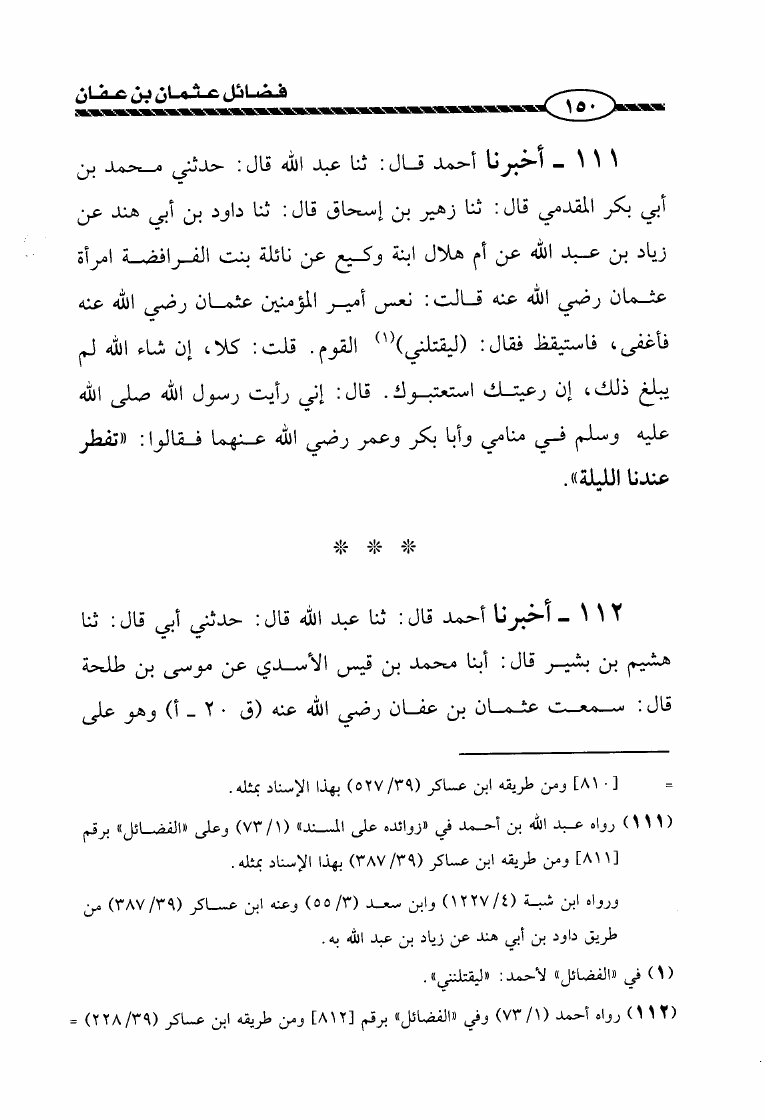 فضائل عثمان بن عفان
١٥٠
١١١ ـ أخبرنا أحمد قال: ثنا عبد الله قال: حدثني محمد بن
أبي بكر المقدمي قال: ثنا زهير بن إسحاق قال: ثنا داود بن أبي هند عن
زياد بن عبد الله عن أم هلال ابنة وكيع عن نائلة بنت الفرافضة امرأة
عثمان رضي الله عنه قالت: نعس أمير المؤمنين عثمان رضي الله عنه
فأغفى، فاستيقظ فقال: (ليقتلني)(١) القوم. قلت: كلا، إن شاء الله لم
يبلغ ذلك، إن رعيتك استعتبوك. قال: إني رأيت رسول الله صلى الله
عليه وسلم في منامي وأبا بكر وعمر رضي الله عنهما فقالوا: «تفطر
عندنا الليلة».
* * *
١١٢ ـ أخبرنا أحمد قال: ثنا عبد الله قال: حدثني أبي قال: ثنا
هشيم بن بشير قال: أبنا محمد بن قيس الأسدي عن موسى بن طلحة
قال: سمعت عثمان بن عفان رضي الله عنه (ق ٢٠ ـ أ) وهو على
= [٨١٠] ومن طريقه ابن عساكر (٥٢٧/٣٩) بهذا الإسناد بمثله.
(١١١) رواه عبد الله بن أحمد في «زوائده على المسند» (٧٣/١) وعلى «الفضائل» برقم
[٨١١] ومن طريقه ابن عساكر (٣٨٧/٣٩) بهذا الإسناد بمثله.
ورواه ابن شبة (١٢٢٧/٤) وابن سعد (٥٥/٣) وعنه ابن عساكر (٣٨٧/٣٩) من
طريق داود بن أبي هند عن زياد بن عبد الله به.
(١) في «الفضائل» لأحمد: «ليقتلنني».
(١١٢) رواه أحمد (٧٣/١) وفي «الفضائل» برقم [٨١٢] ومن طريقه ابن عساكر (٢٢٨/٣٩) =